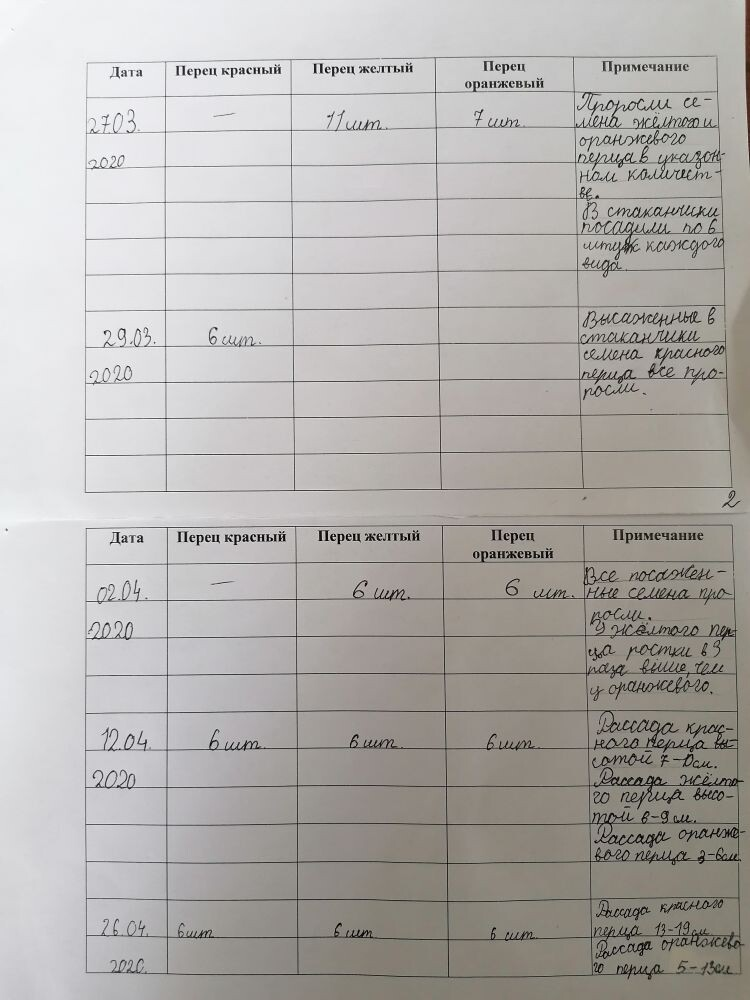 Дата Перец красный Перец желтый Перец оранжевый Примечание
27.03. 2020 — 11 шт. 7 шт.
Проросли се-
мена жёлтого и
оранжевого
перца в указон-
ном количест-
ве.
В стаканчики
посадили по 6
штук каждого
вида.
29.03. 2020 6 шт.
Высаженные в
стаканчики
семена красного
перца все про-
росли.
2
Дата Перец красный Перец желтый Перец оранжевый Примечание
02.04. 2020 — 6 шт. 6 шт.
Все посажен-
ные семена про
росли.
У жёлтого пер-
ца ростки в 3
раза выше, чем
у оранжевого.
12.04. 2020 6 шт. 6 шт. 6 шт.
Рассада крас-
ного перца вы-
сотой см.
Рассада жёлто-
го перца высо-
той см.
Рассада оранже-
вого перца 3-6см
26.04. 2020. 6шт 6 шт. 6 шт.
Рассада красного
перца 13-19см
Рассада оранжево
го перца 5-13см